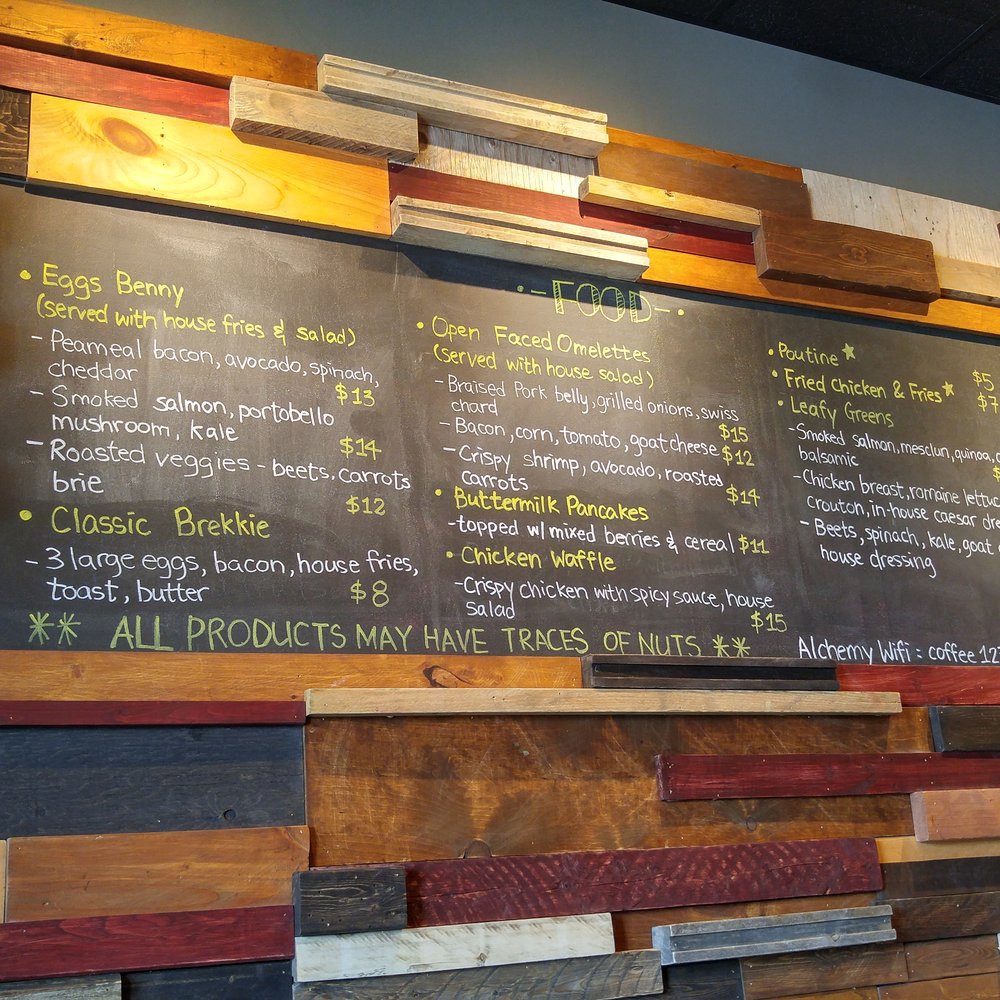 • Eggs Benny
(served with house fries & salad)
- Peameal bacon, avocado, spinach,
cheddar $13
- Smoked salmon, portobello
mushroom, kale $14
- Roasted veggies - beets, carrots
brie $12
• Classic Brekkie
- 3 large eggs, bacon, house fries,
toast, butter $8
•-FOOD-•
• Open Faced Omelettes
(served with house salad)
- Braised Pork belly, grilled onions, swiss
chard $15
- Bacon, corn, tomato, goat cheese $12
- Crispy shrimp, avocado, roasted
carrots $14
• Buttermilk Pancakes
- topped w/ mixed berries & cereal $11
• Chicken Waffle
- Crispy chicken with spicy sauce, house
salad $15
• Poutine * $5
• Fried Chicken & Fries * $7
• Leafy Greens
- Smoked salmon, mesclun, quinoa,
balsamic
- Chicken breast, romaine
crouton, in-house caesar
- Beets, spinach, kale, goat
house dressing
** ALL PRODUCTS MAY HAVE TRACES OF NUTS **
Alchemy Wifi : coffee